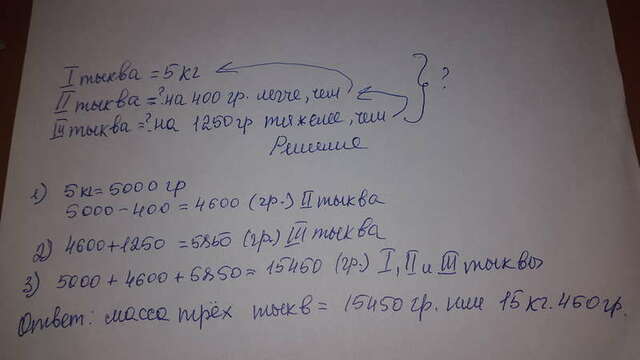 I тыква = 5 кг
II тыква = ? на 400 гр. легче, чем
III тыква = ? на 1250 гр тяжелее, чем
} ?
Решение
1) 5 кг = 5000 гр
5000 - 400 = 4600 (гр.) II тыква
2) 4600 + 1250 = 5850 (гр.) III тыква
3) 5000 + 4600 + 5850 = 15450 (гр.) I, II и III тыквы
Ответ: масса трёх тыкв = 15450 гр. или 15 кг. 450 гр.